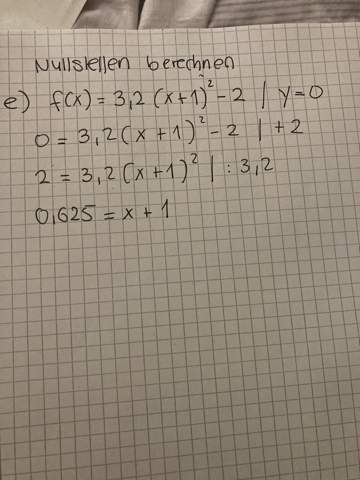 Nullstellen berechnen
e) f(x) = 3,2 (x+1)² - 2 | y=0
0 = 3,2 (x + 1)² - 2 | + 2
2 = 3,2 (x+1)² | : 3,2
0,625 = x + 1